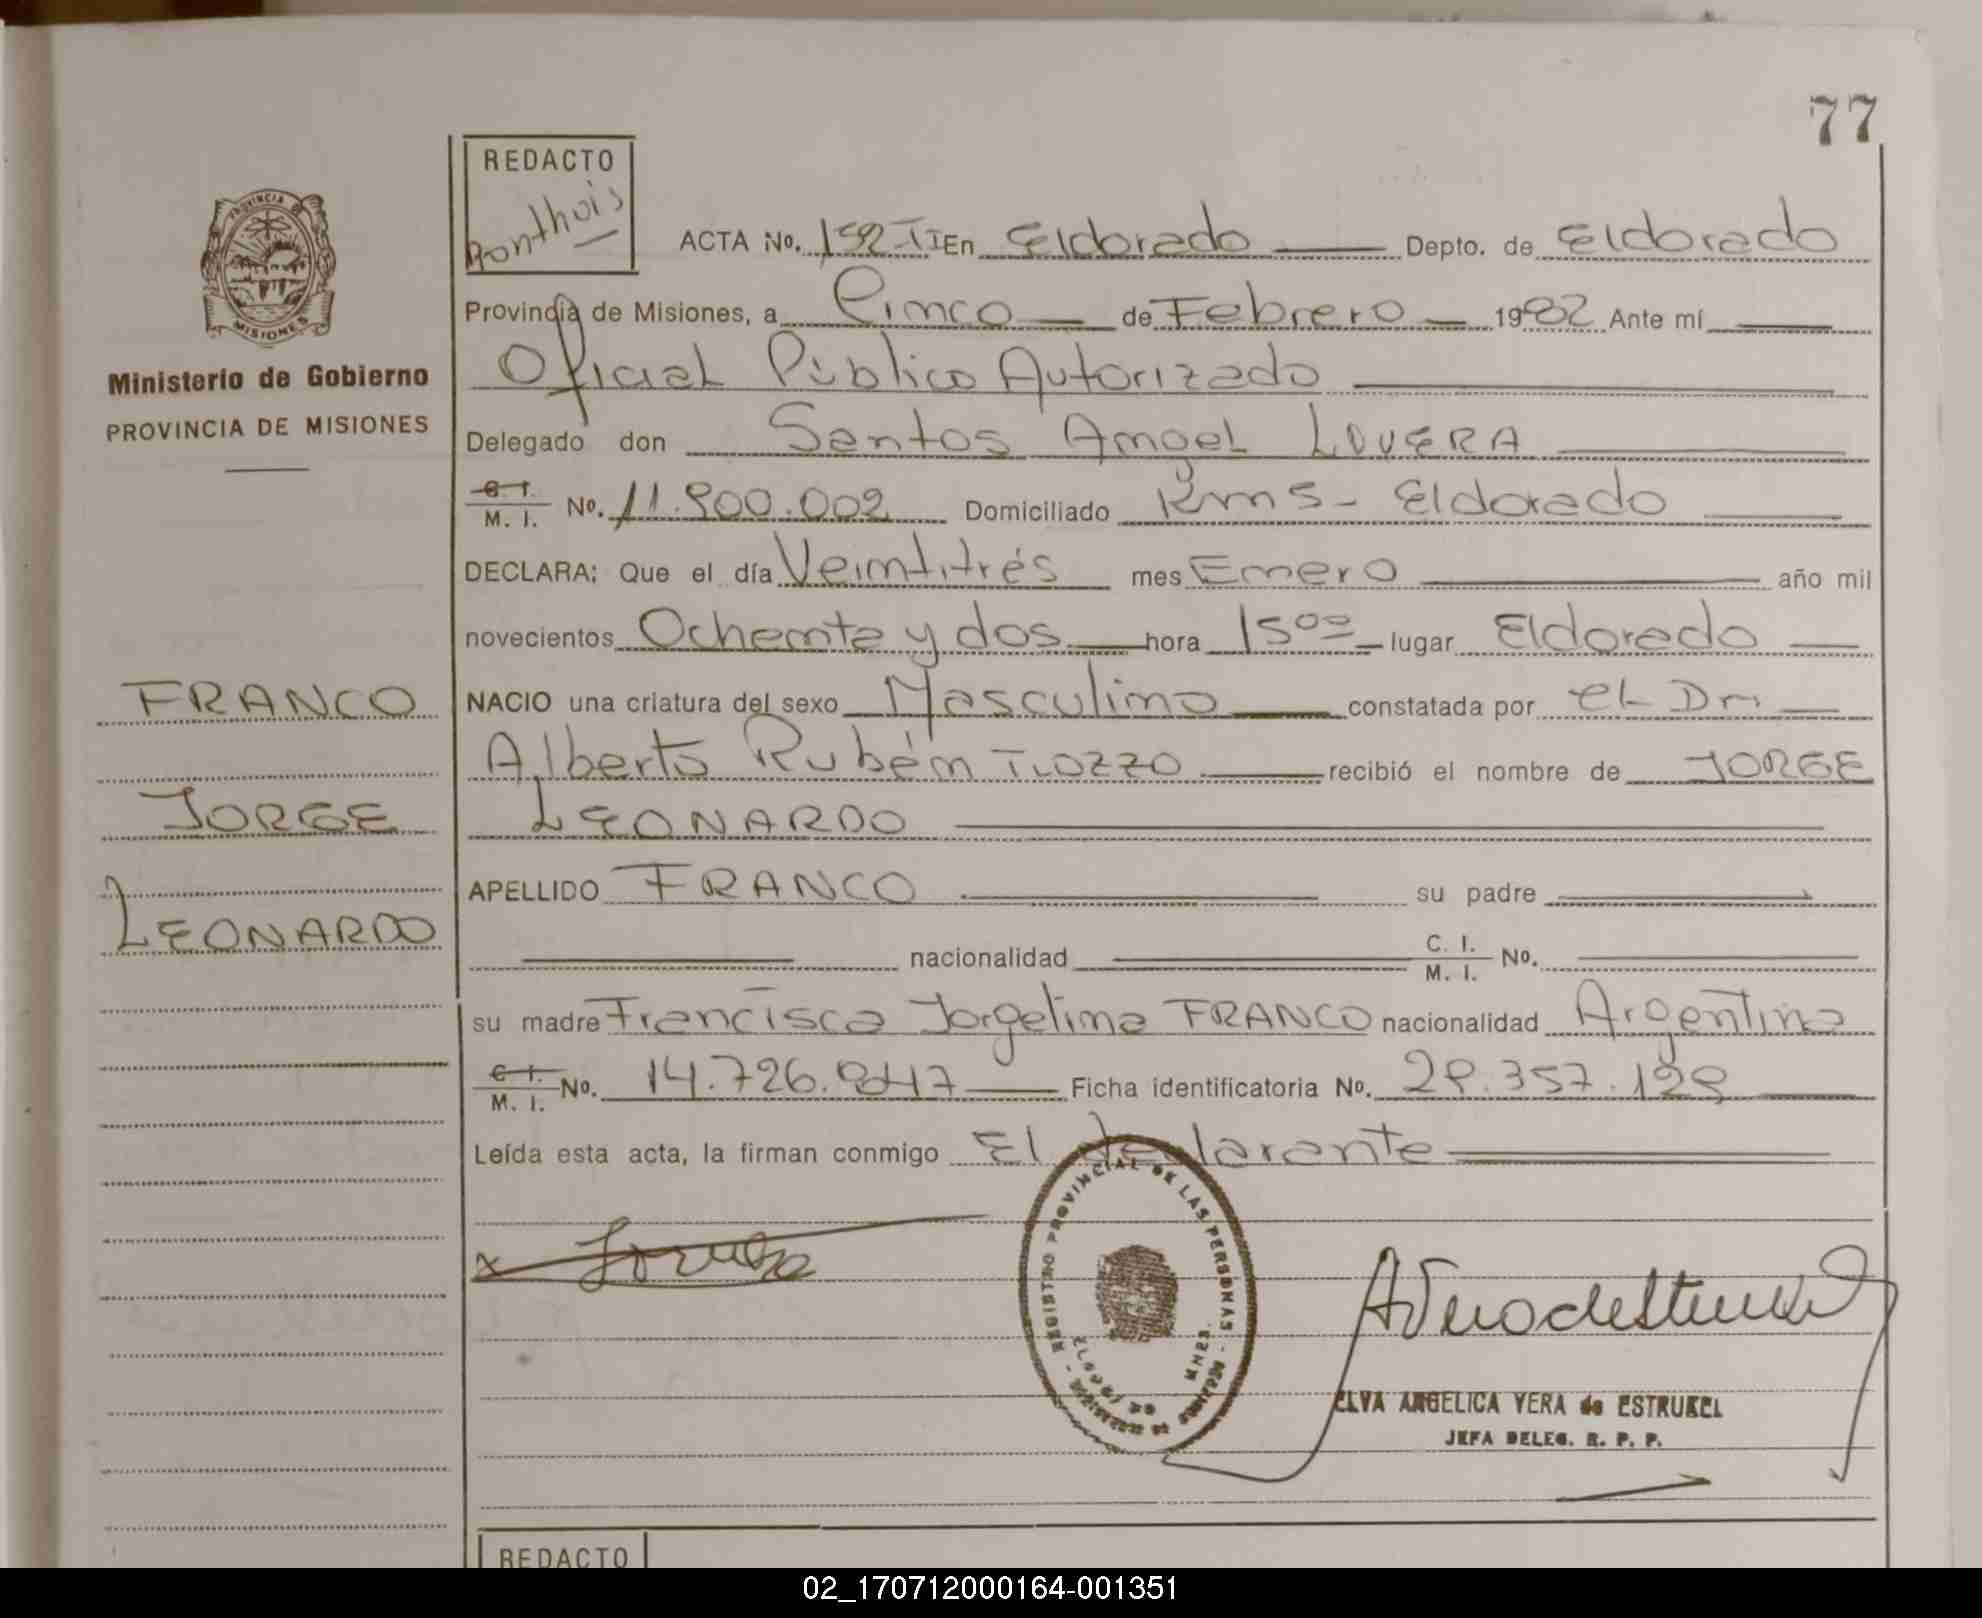 77
REDACTO
Ponthuis
PROVINCIA DE
MISIONES
Ministerio de Gobierno
PROVINCIA DE MISIONES
FRANCO
JORGE
LEONARDO
ACTA No. 192 II En Eldorado Depto. de Eldorado
Provincia de Misiones, a Cinco de Febrero 1982 Ante mí
Oficial Público Autorizado
Delegado don Santos Angel LOVERA
C. I. M. I. No. 11.900.002 Domiciliado Km 5 - Eldorado
DECLARA: Que el día Veintitrés mes Enero año mil
novecientos Ochenta y dos hora 15oo lugar Eldorado
NACIO una criatura del sexo Masculino constatada por el Dr.
Alberto Rubén TIOZZO recibió el nombre de JORGE
LEONARDO
APELLIDO FRANCO su padre
nacionalidad C. I. M. I. No.
su madre Francisca Jorgelina FRANCO nacionalidad Argentina
C. I. M. I. No. 14.726.847 Ficha identificatoria No. 29.357.129
Leída esta acta, la firman conmigo El declarante
REGISTRO PROVINCIAL DE LAS PERSONAS
MNES.
ELVA ANGELICA VERA de ESTRUKEL
JEFA DELEG. R. P. P.
REDACTO
02_170712000164-001351